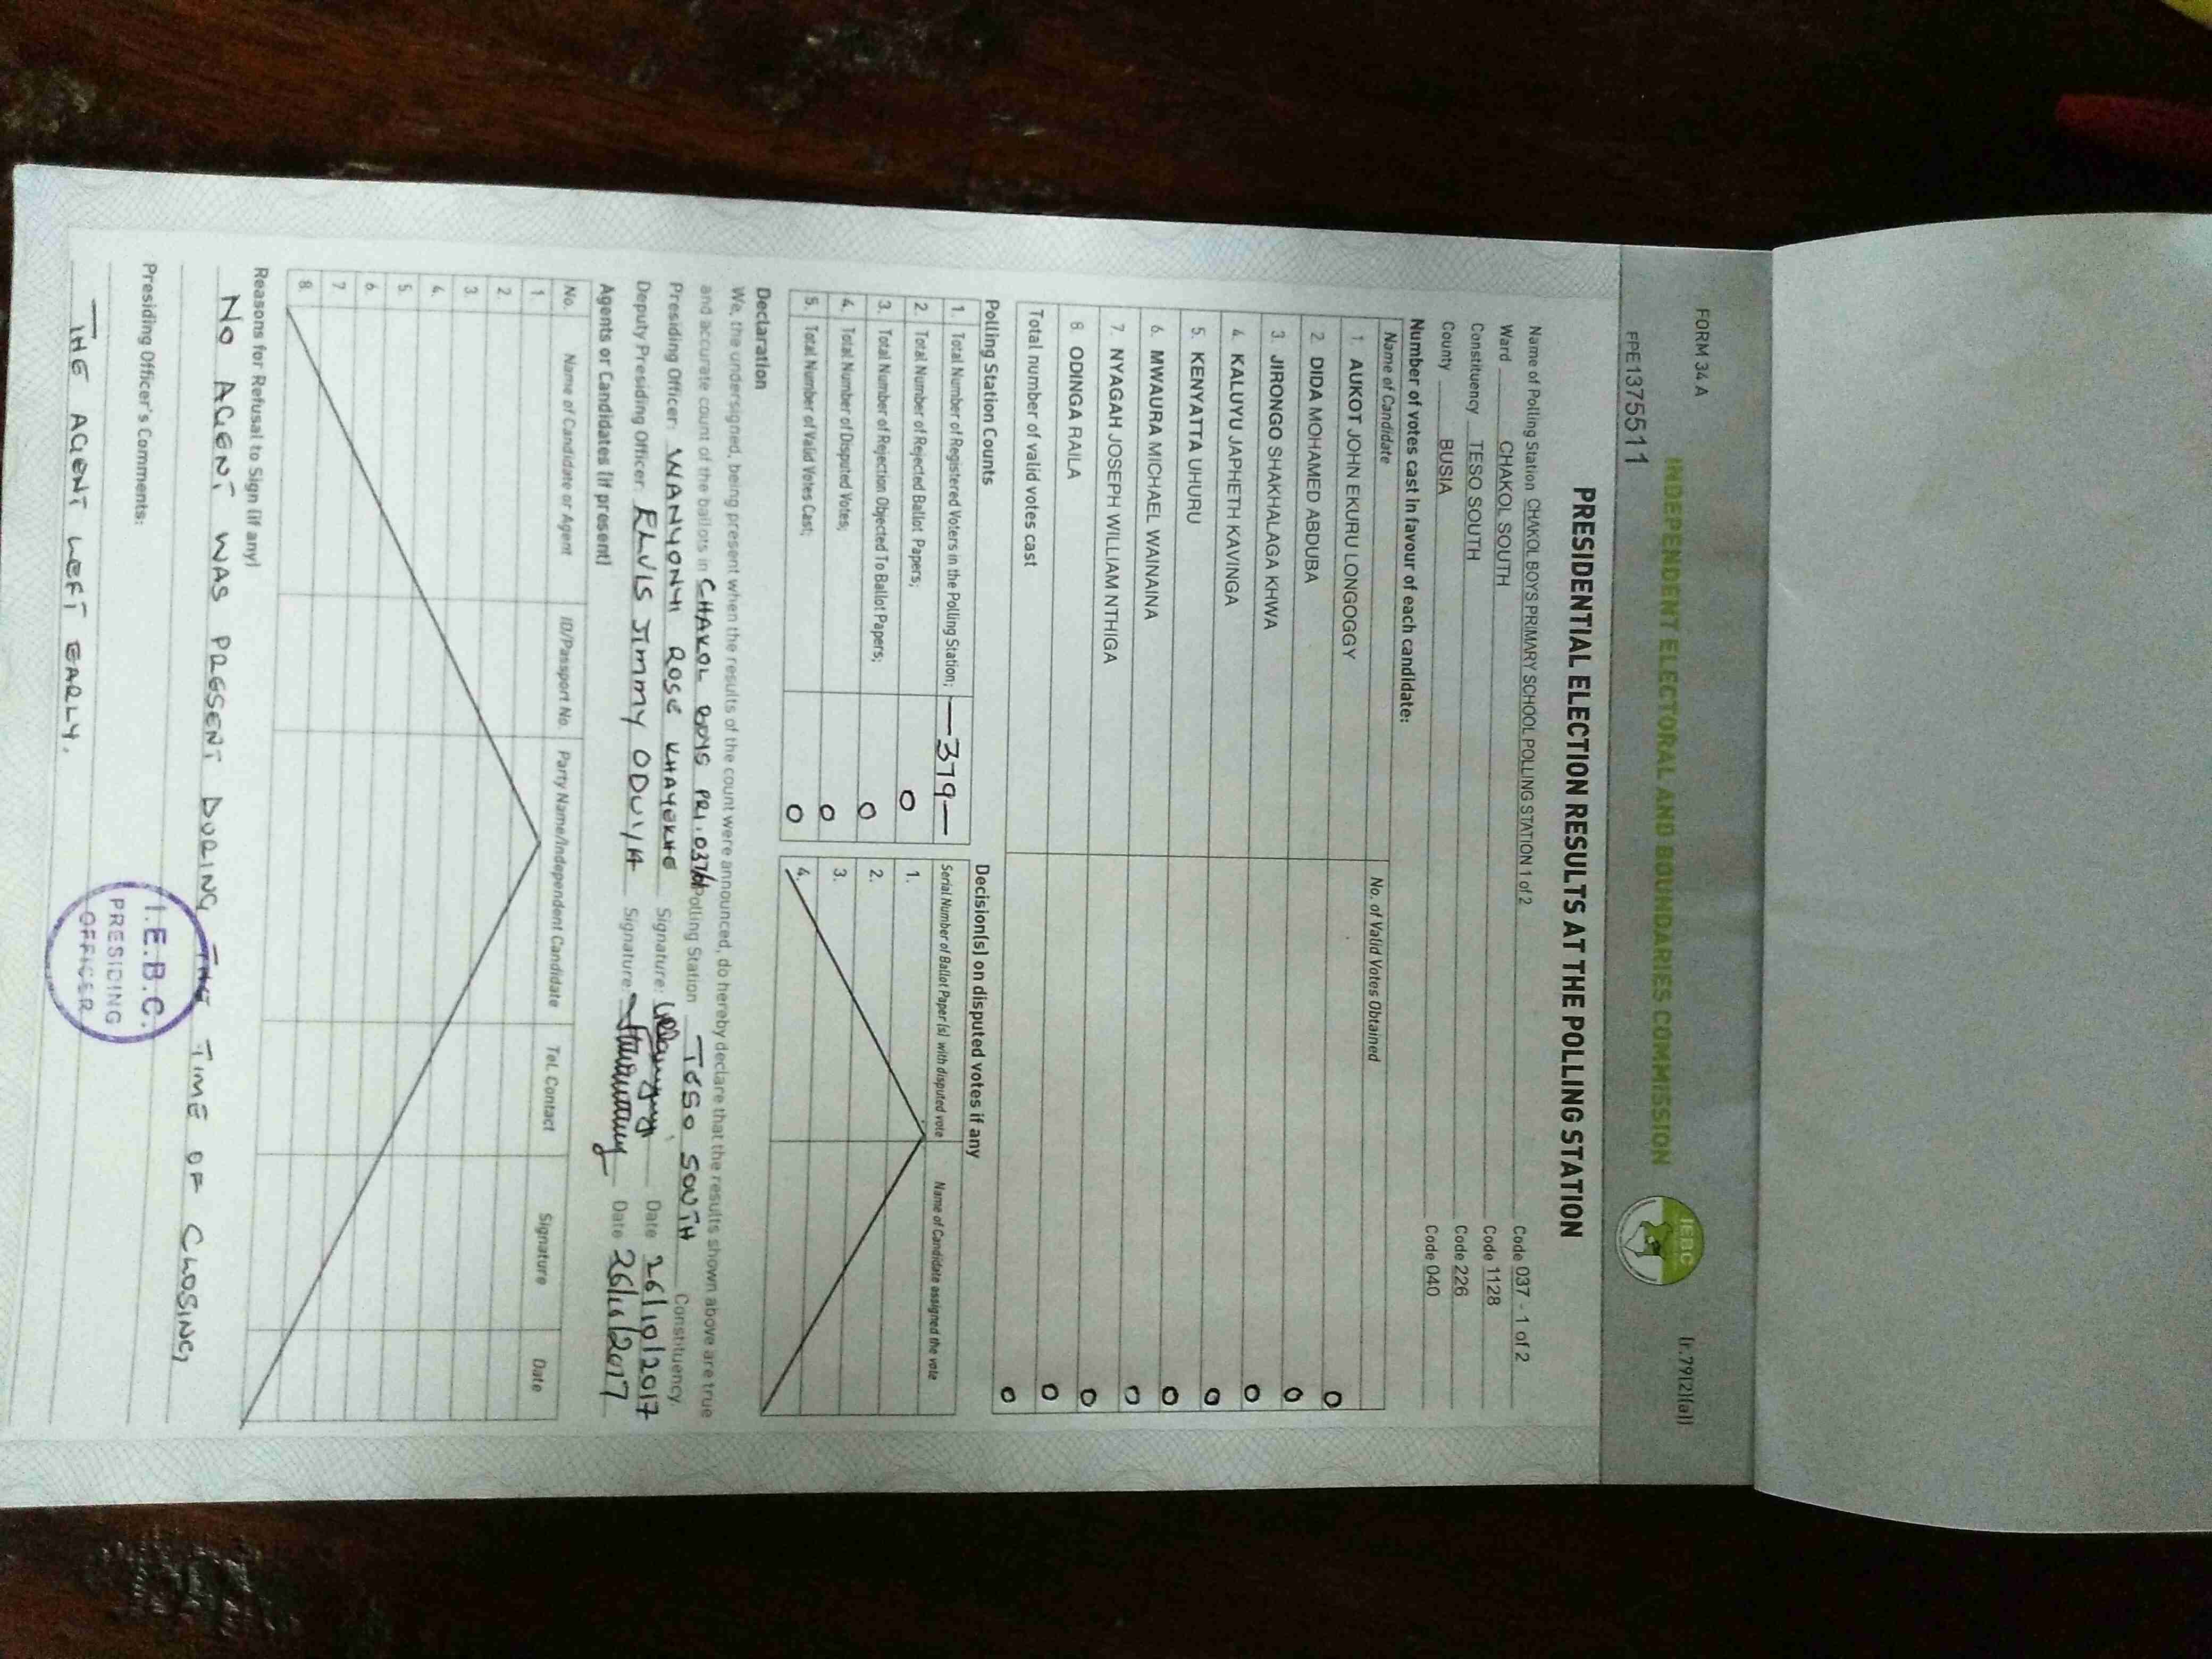 FORM 34 A (r.79(2)(a))
INDEPENDENT ELECTORAL AND BOUNDARIES COMMISSION
IEBC
FPE1375511
PRESIDENTIAL ELECTION RESULTS AT THE POLLING STATION
Name of Polling Station CHAKOL BOYS PRIMARY SCHOOL POLLING STATION 1 of 2 Code 037 - 1 of 2
Ward CHAKOL SOUTH Code 1128
Constituency TESO SOUTH Code 226
County BUSIA Code 040
Number of votes cast in favour of each candidate:
Name of Candidate No. of Valid Votes Obtained
1. AUKOT JOHN EKURU LONGOGGY 0
2. DIDA MOHAMED ABDUBA 0
3. JIRONGO SHAKHALAGA KHWA 0
4. KALUYU JAPHETH KAVINGA 0
5. KENYATTA UHURU 0
6. MWAURA MICHAEL WAINAINA 0
7. NYAGAH JOSEPH WILLIAM NTHIGA 0
8. ODINGA RAILA 0
Total number of valid votes cast 0
Polling Station Counts
1. Total Number of Registered Voters in the Polling Station; —379—
2. Total Number of Rejected Ballot Papers; 0
3. Total Number of Rejection Objected To Ballot Papers; 0
4. Total Number of Disputed Votes; 0
5. Total Number of Valid Votes Cast; 0
Decision(s) on disputed votes if any
Serial Number of Ballot Paper (s) with disputed vote Name of Candidate assigned the vote
1.
2.
3.
4.
Declaration
We, the undersigned, being present when the results of the count were announced, do hereby declare that the results shown above are true
and accurate count of the ballots in CHAKOL BOYS PRI.037/01 Polling Station TESO SOUTH Constituency
Presiding Officer: WANYONYI ROSE KHAYEKHE Signature: Date 26/10/2017
Deputy Presiding Officer: ELVIS JIMMY ODUYA Signature: Date 26/10/2017
Agents or Candidates (if present)
No. Name of Candidate or Agent ID/Passport No. Party Name/Independent Candidate Tel. Contact Signature Date
1.
2.
3.
4.
5.
6.
7.
8.
Reasons for Refusal to Sign (if any)
NO AGENT WAS PRESENT DURING THE TIME OF CLOSING
Presiding Officer's Comments:
THE AGENT LEFT EARLY.
I.E.B.C.
PRESIDING
OFFICER